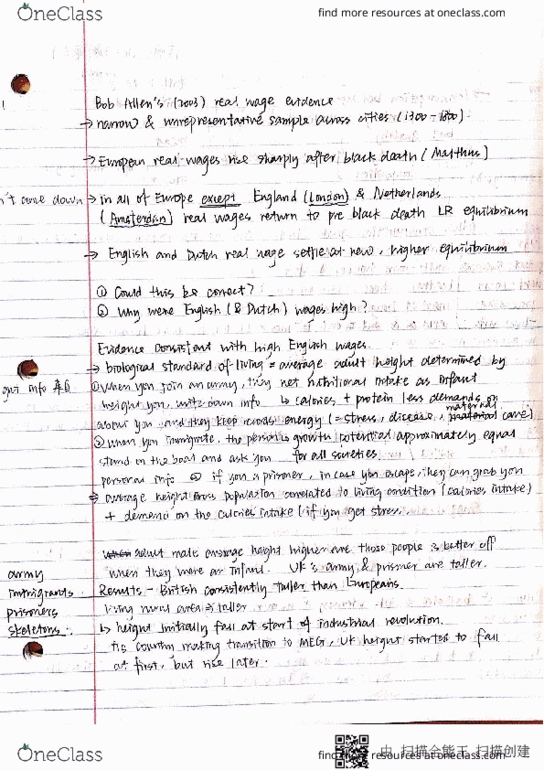 OneClass
find more resources at oneclass.com
Bob Allen's (2003) real wage evidence
→ narrow & unrepresentative sample across cities (1300-1800).
→ European real wages rise sharply after black death (Malthus)
n't come down → in all of Europe except England (London) & Netherlands
(Amsterdam) real wages return to pre black death LR equilibrium
→ English and Dutch real wage settle at new, higher equilibrium
① Could this be correct?
② Why were English (& Dutch) wages high?
Evidence consistent with high English wages.
→ biological standard of living = average adult height determined by
info ① when you join an army, they net nutritional intake as infant
height you, write down info ↳ calories + protein less demands on
about you and they keep records energy (= stress, disease, material care)
② when you immigrate, the growth potential approximately equal
stand on the boat and ask you for all societies
personal info ③ if you a prisoner, in case you escape, they can grab you
average height across population correlated to living condition (calories intake)
+ demand on the calories intake (if you get stress.
adult male average height higher are those people is better off
army when they were an infant. UK's army & prisoner are taller.
immigrants Results - British consistently taller than Europeans.
prisoners living rural area = taller
skeletons ↳ height initially fall at start of industrial revolution.
country making transition to MEG, UK height started to fall
at first, but rise later.
OneClass
find more resources at oneclass.com
由 扫描全能王 扫描创建